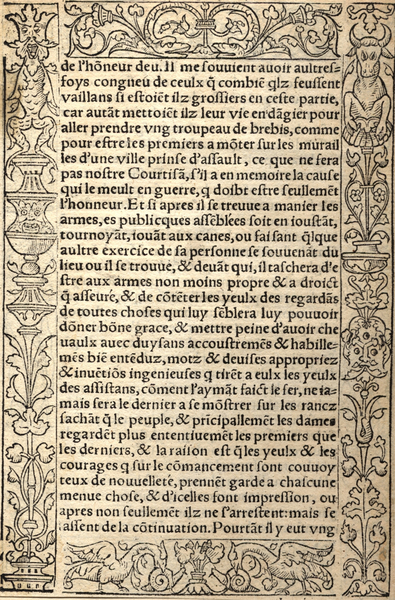 de l'hõneur deu. Il me souuient auoir aultres-
foys congneu de ceulx q̃ combiẽ q̃lz feussent
vaillans si estoiẽt ilz grossiers en ceste partie,
car autãt mettoiẽt ilz leur vie en dãgier pour
aller prendre vng troupeau de brebis, comme
pour estre les premiers a mõter sur les murail
les d'une ville prinse d'assault, ce que ne fera
pas nostre Courtisã, s'il a en memoire la cause
qui le meult en guerre, q̃ doibt estre seullemẽt
l'honneur. Et si apres il se treuue a manier les
armes, es publicques assẽblées soit en ioustãt,
tournoyãt, iouãt aux canes, ou faisant q̃lque
aultre exercice de sa personne se souuenãt du
lieu ou il se trouue, & deuãt qui, il taschera d'e
stre aux armes non moins propre & a droict
q̃ asseuré, & de cõtẽter les yeulx des regardãs
de toutes choses qui luy sẽblera luy pouuoir
dõner bõne grace, & mettre peine d'auoir che
uaulx auec duysans accoustremẽs & habille-
mẽs biẽ entẽduz, motz & deuises appropriez
& inuẽtiõs ingenieuses q̃ tirẽt a eulx les yeulx
des assistans, cõment l'aymãt faict le fer, ne ia-
mais sera le dernier a se mõstrer sur les rancz
sachãt q̃ le peuple, & prĩcipallemẽt les dames
regardẽt plus ententiuemẽt les premiers que
les derniers, & la raison est q̃ les yeulx & les
courages q̃ sur le cõmancement sont couuoy
teux de nouuelleté, prennẽt garde a chascune
menue chose, & d'icelles font impression, ou
apres non seullemẽt ilz ne s'arrestent: mais se
lassent de la cõtinuation. Pourtãt il y eut vng